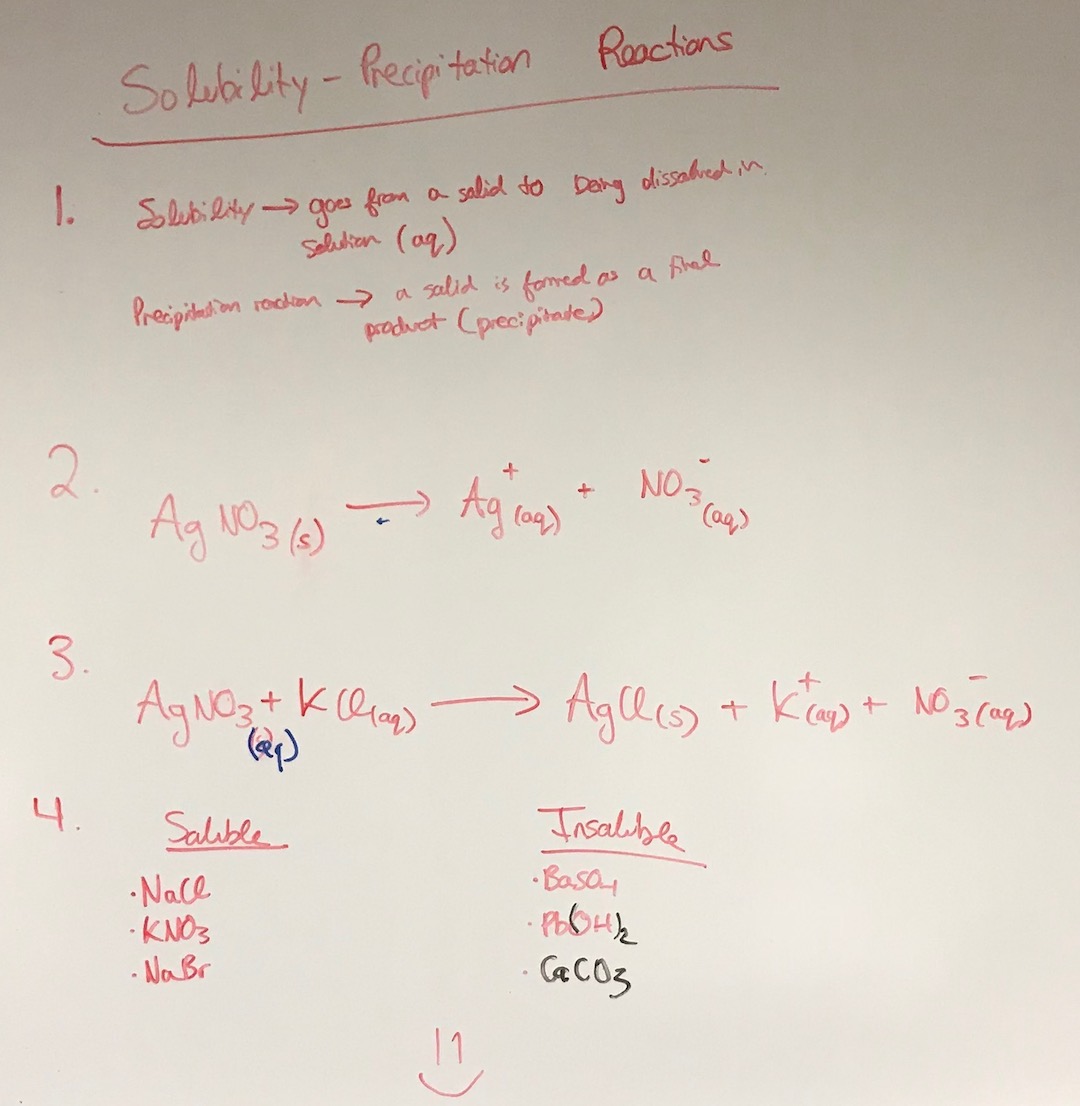 Solubility - Precipitation Reactions
1. Solubility → goes from a solid to being dissolved in
solution (aq)
Precipitation reaction → a solid is formed as a final
product (precipitate)
2. AgNO₃(s) ⟶ Ag⁺(aq) + NO₃⁻(aq)
←
3. AgNO₃ + KCl(aq) ⟶ AgCl(s) + K⁺(aq) + NO₃⁻(aq)
(aq)
4. Soluble Insoluble
· NaCl · BaSO₄
· KNO₃ · Pb(OH)₂
· NaBr · CaCO₃